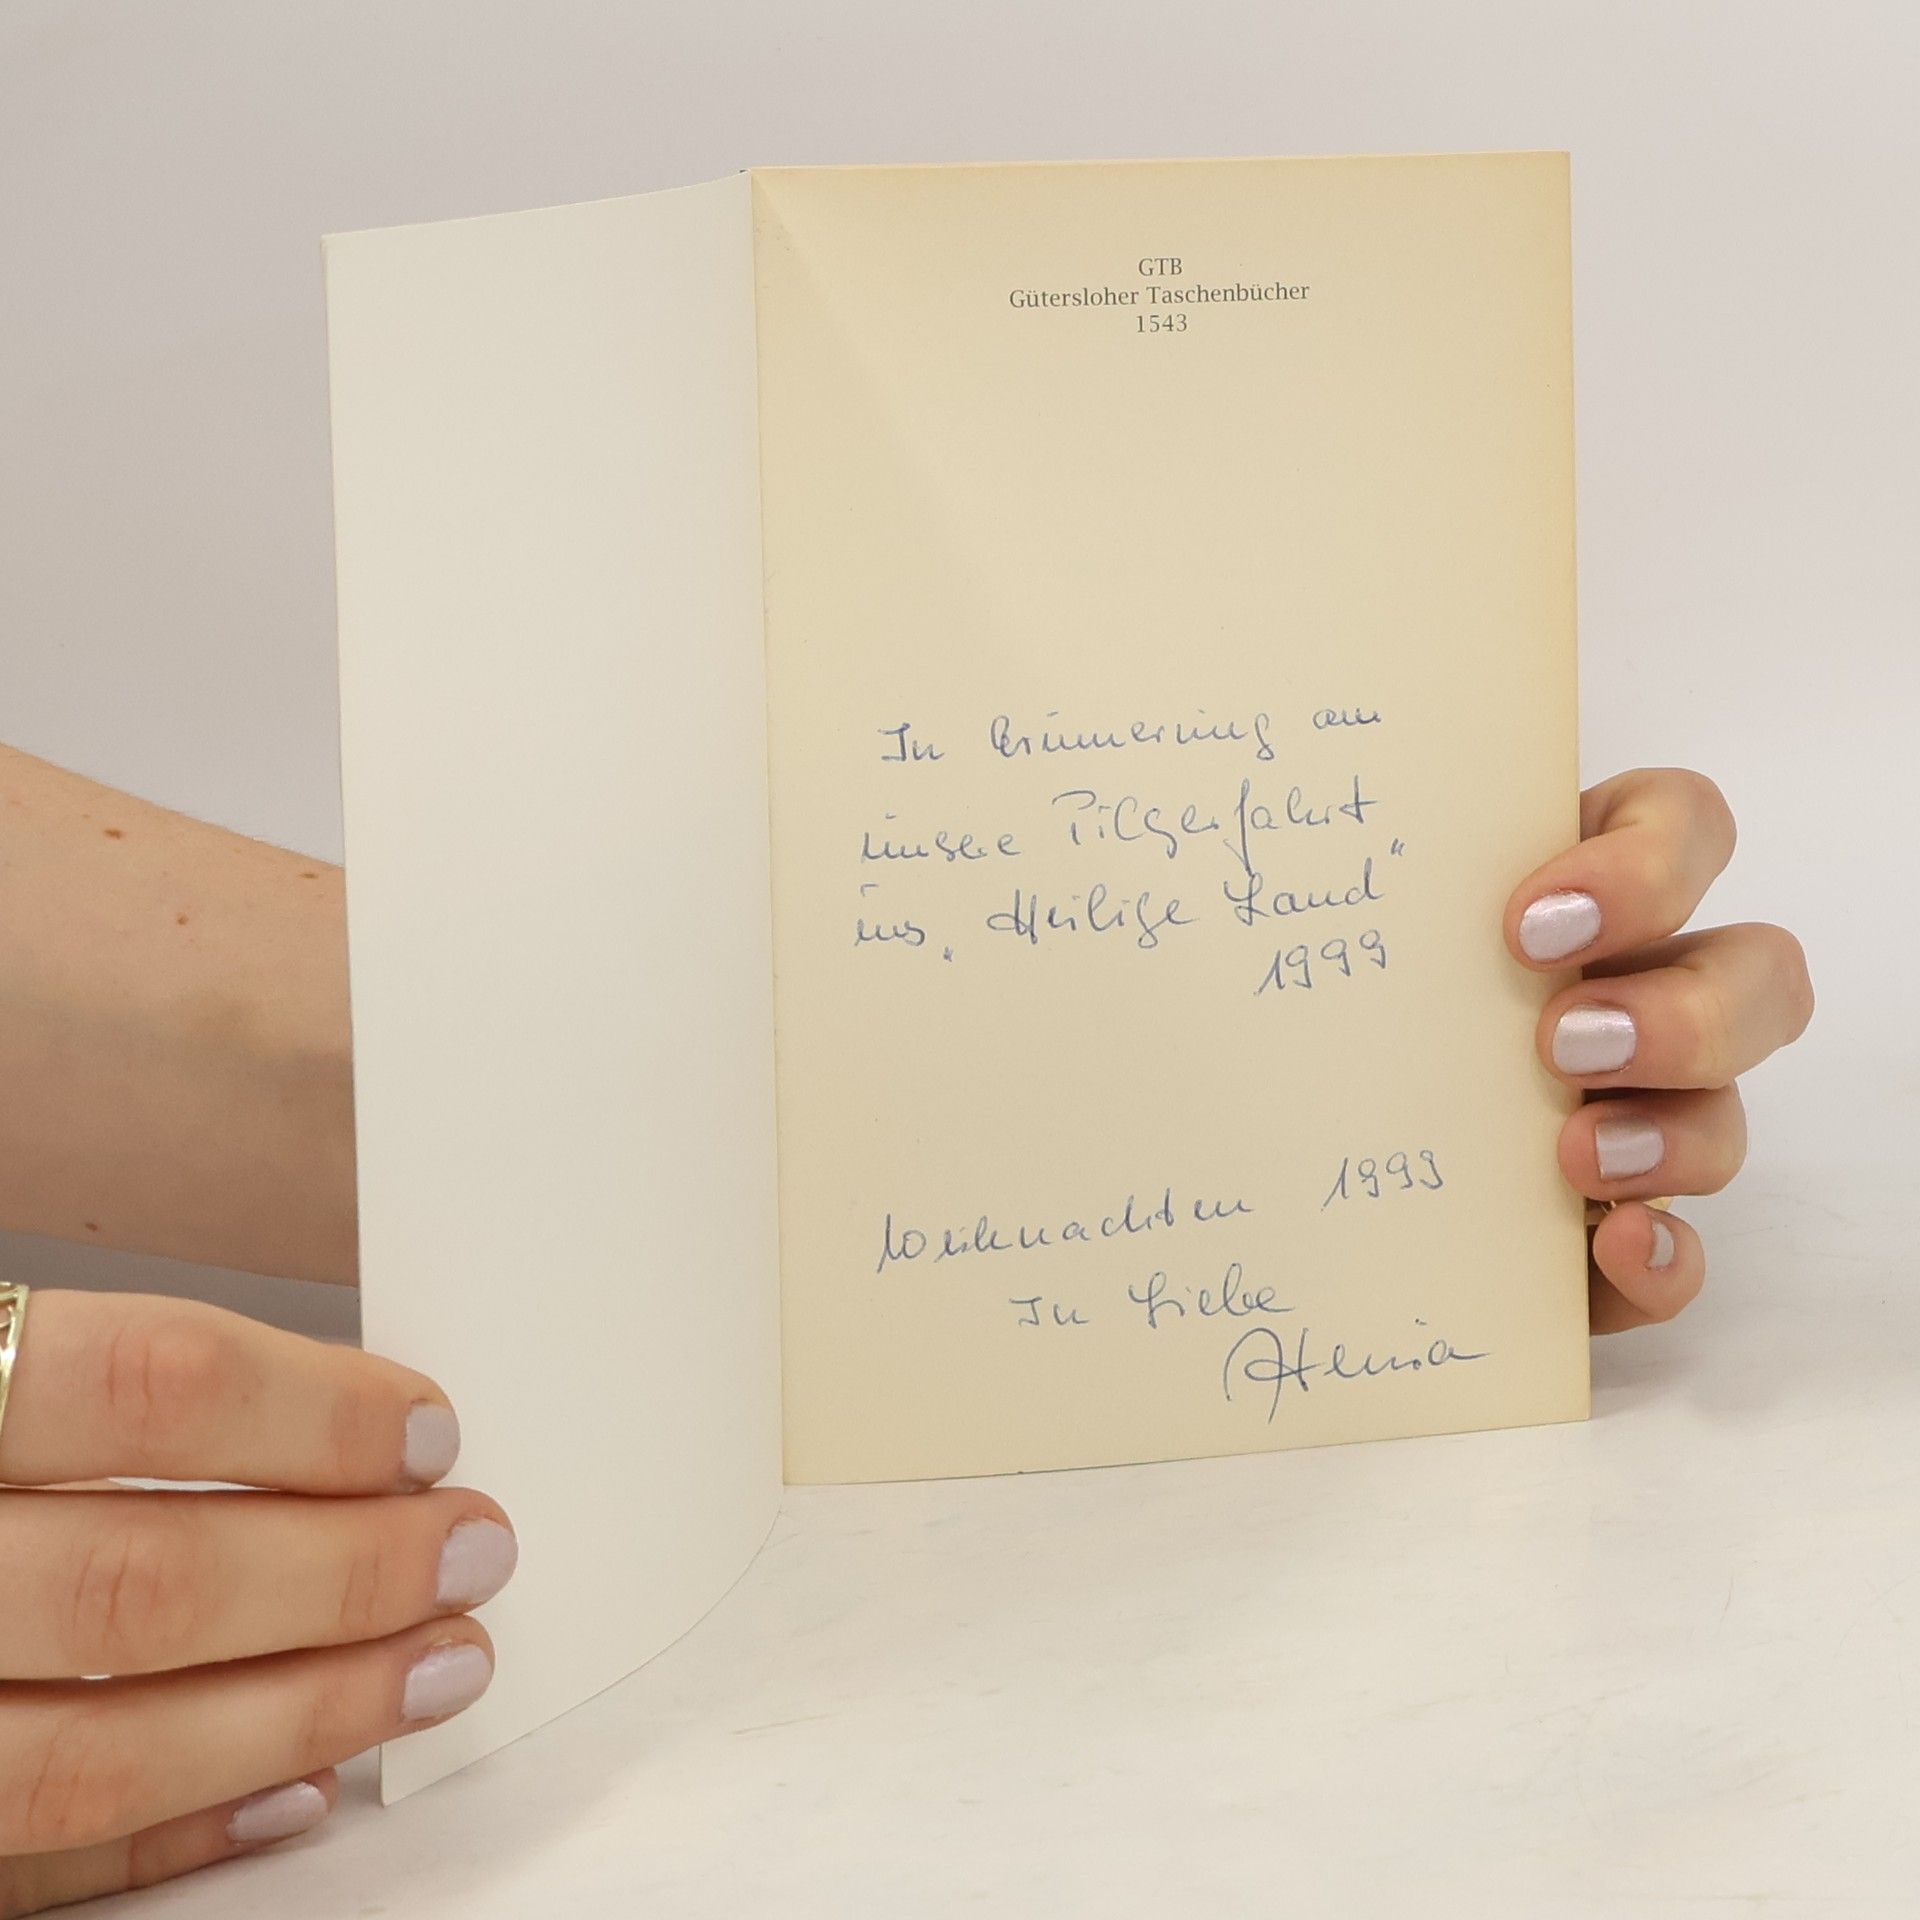 GTB
Gütersloher Taschenbücher
1543
In Erinnerung an
unsere Pilgerfahrt
ins „Heilige Land"
1999
Weihnachten 1999
In Liebe